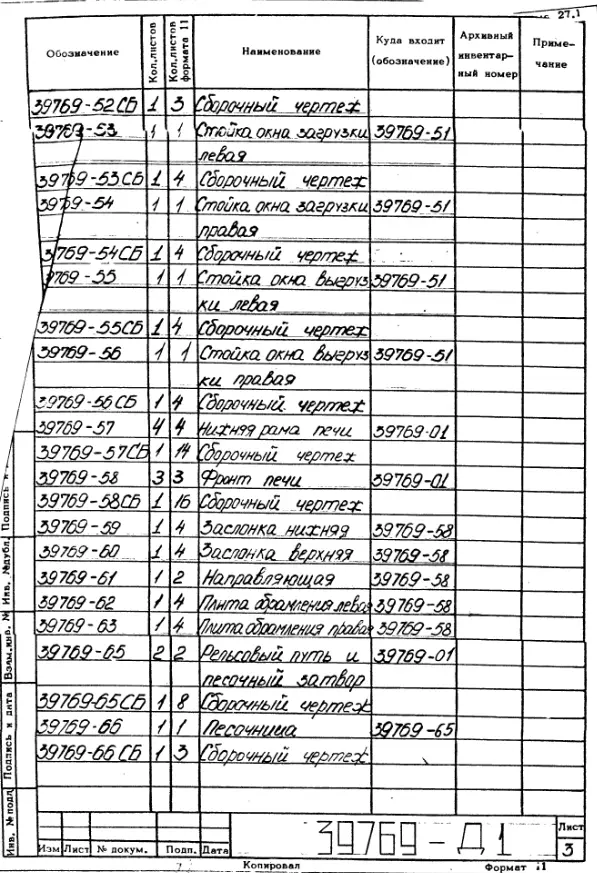 27.1
Обозначение Кол.листов Кол.листов формата 11 Наименование Куда входит (обозначение) Архивный инвентар-ный номер Приме-чание
39769-52СБ 1 3 Сборочный чертеж
39769-53 1 1 Стойка окна загрузки 39769-51
левая
39769-53СБ 1 4 Сборочный чертеж
39769-54 1 1 Стойка окна загрузки 39769-51
правая
39769-54СБ 1 4 Сборочный чертеж
39769-55 1 1 Стойка окна выгруз 39769-51
ки левая
39769-55СБ 1 4 Сборочный чертеж
39769-56 1 1 Стойка окна выгруз 39769-51
ки правая
39769-56СБ 1 4 Сборочный чертеж
39769-57 4 4 Нижняя рама печи 39769-01
39769-57СБ 1 14 Сборочный чертеж
39769-58 3 3 Фронт печи 39769-01
39769-58СБ 1 16 Сборочный чертеж
39769-59 1 4 Заслонка нижняя 39769-58
39769-60 1 4 Заслонка верхняя 39769-58
39769-61 1 2 Направляющая 39769-58
39769-62 1 4 Плита обрамления левая 39769-58
39769-63 1 4 Плита обрамления правая 39769-58
39769-65 2 2 Рельсовый путь и 39769-01
песочный затвор
39769-65СБ 1 8 Сборочный чертеж
39769-66 1 1 Песочница 39769-65
39769-66СБ 1 3 Сборочный чертеж
Инв. № подл. Подпись и дата Взам.инв. № Инв. № дубл. Подпись и
39769-Д1 Лист
3
Изм Лист № докум. Подп. Дата
Копировал Формат 11